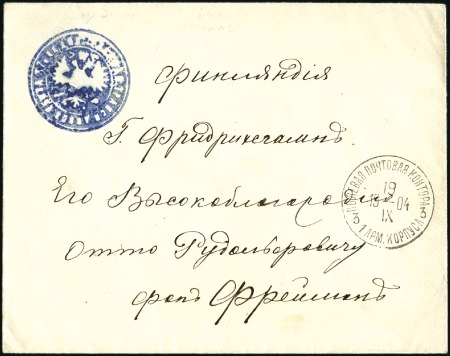 Финляндія
Г. Фридрихсгамъ
Его Высокоблагородію
Отто Рудольфовичу
фонъ Фрейманъ
ПОЛЕВАЯ ПОЧТОВАЯ КОНТОРА
19
IX
04
3 3
1 АРМ. КОРПУСА